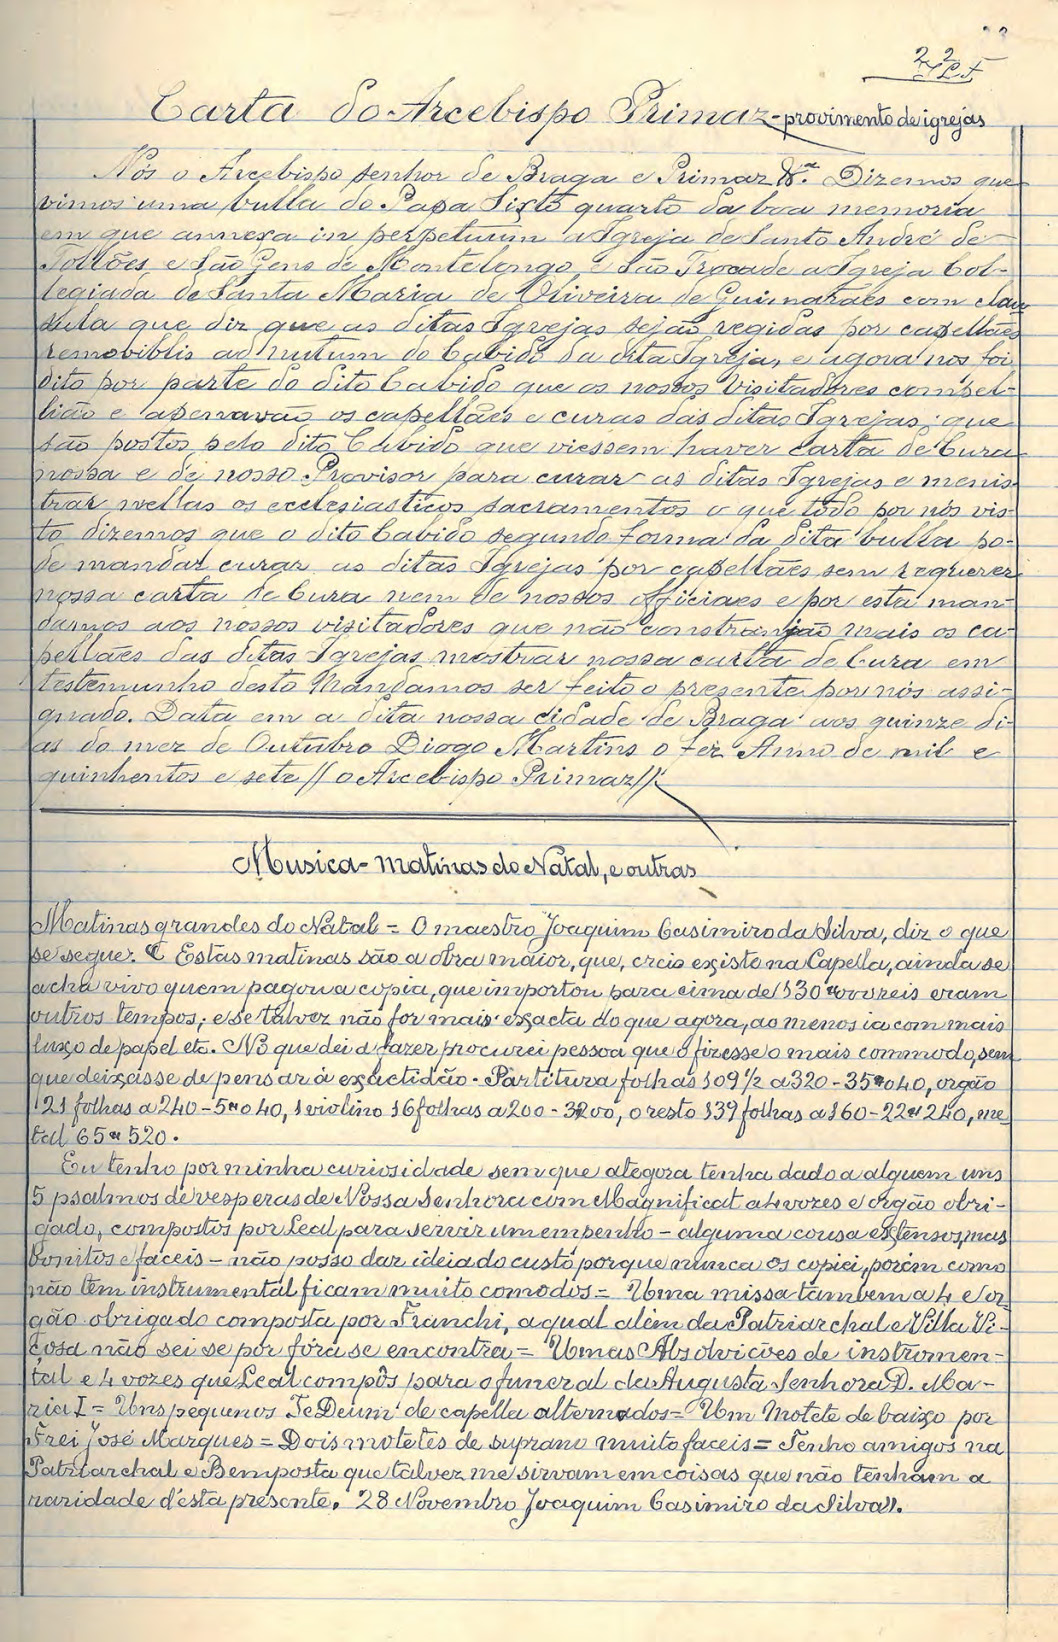 22
Carta do Arcebispo Primaz - provimento de igrejas
Nós o Arcebispo senhor de Braga e Primaz &.ª Dizemos que
vimos uma bulla do Papa Sixto quarto da boa memoria
em que annexa in perpetuum a Igreja de Santo André de
Tollões e São Gens de Montelongo e São Trocade a Igreja Col-
legiada de Santa Maria de Oliveira de Guimarães com clau
sula que diz que as ditas Igrejas sejão regidas por capellães
removiblis ad nutum do Cabido da dita Igreja, e agora nos foi
dito por parte do dito Cabido que os nossos Visitadores compel-
lião e apenavão os capellães e curas das ditas Igrejas, que
são postos pelo dito Cabido que viessem haver carta de Cura
nossa e de nosso Provisor para curar as ditas Igrejas e menis-
trar nellas os ecclesiasticos sacramentos o que todo por nós vis-
to dizemos que o dito Cabido segundo forma da dita bulla po-
de mandar curar as ditas Igrejas por capellães sem requerer
nossa carta de Cura nem de nossos officiaes e por esta man-
damos aos nossos visitadores que não constranjão mais os ca-
pellães das ditas Igrejas mostrar nossa carta de Cura em
testemunho desto Mandamos ser feito o presente por nós assi-
gnado. Data em a dita nossa cidade de Braga aos quinze di-
as do mez de Outubro Diogo Martins o fez Anno de mil e
quinhentos e sete // o Arcebispo Primaz //
Musica - matinas do Natal, e outras
Matinas grandes do Natal = O maestro Joaquim Casimiro da Silva, diz o que
se segue: Estas matinas são a obra maior, que, creio existe na Capella, ainda se
acha vivo quem pagou a copia, que importou para cima de 130 000 reis eram
outros tempos; e se talvez não for mais exacta do que agora, ao menos ia com mais
luxo de papel etc. No que dei a fazer procurei pessoa que o fizesse o mais commodo, sem
que deixasse de pensar á exactidão. Partitura folhas 109 1/2 a 320 - 35"040, orgão
21 folhas a 240 - 5"040, 1 violino 16 folhas a 200 - 3200, o resto 139 folhas a 160 - 22"240, me
tal 65"520.
Eu tenho por minha curiosidade sem que ategora tenha dado a alguem uns
5 psalmos de vesperas de Nossa Senhora com Magnificat a 4 vozes e orgão obri-
gado, compostos por Leal para servir um empenho - alguma cousa extensos, mas
bonitos e faceis - não posso dar ideia do custo porque nunca os copiei, porém como
não tem instrumental ficam muito comodos = Uma missa tambem a 4 e or-
gão obrigado composta por Franchi, a qual além da Patriarchal e Villa Vi-
çosa não sei se por fóra se encontra = Umas Absolvicões de instromen-
tal e 4 vozes que Leal compôs para o funeral da Augusta Senhora D. Ma-
ria I = Uns pequenos Te Deum de capella alternados = Um Motete de baixo por
Frei José Marques = Dois motetes de suprano muito faceis = Tenho amigos na
Patriarchal e Bemposta que talvez me sirvam em coisas que não tenham a
raridade d'esta presente. 28 Novembro Joaquim Casimiro da Silva".